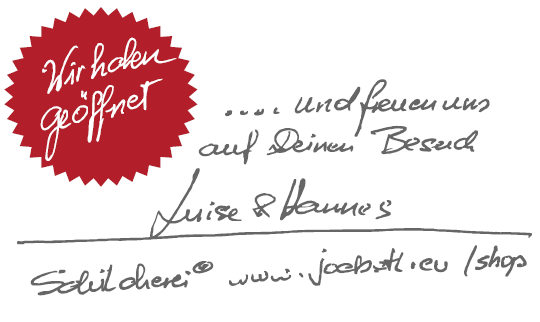 Wir haben
geöffnet
..... und freuen uns
auf Deinen Besuch
Luise & Hannes
Schilcherei® www.joebstl.eu/shop